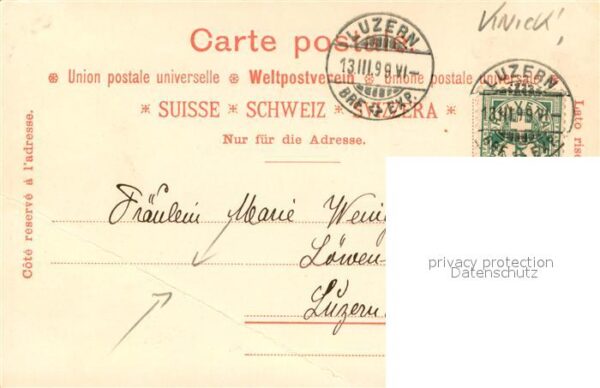 Knick!
Carte postale.
LUZERN
13.III.99.VI–
BRF. EXP.
LUZERN
13.III.99.VI–
Union postale universelle Weltpostverein Unione postale universale
SUISSE SCHWEIZ SVIZZERA
Nur für die Adresse.
Côté réservé à l'adresse.
Lato rise
Fräulein Marie Wein
Löwen-
Luzern
privacy protection
Datenschutz